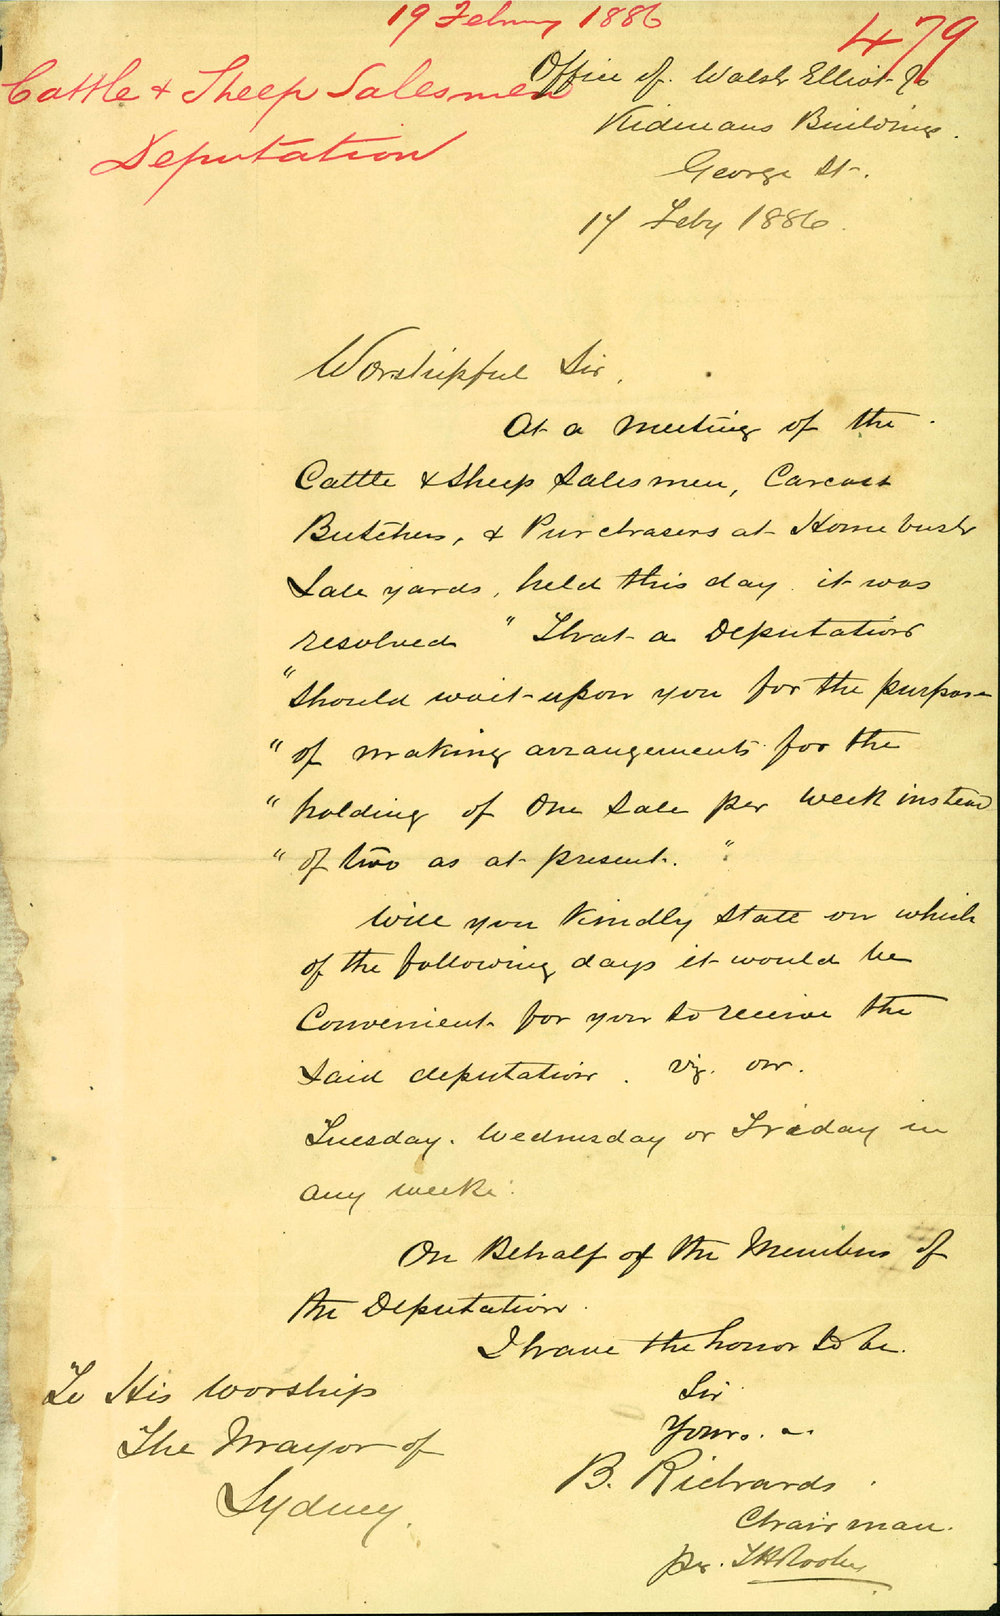 19 February 1886
479
Cattle & Sheep Salesmen
Deputation
Office of Walsh Elliot &Co
Kidmans Buildings.
George St.
17 Feby 1886.
Worshipful Sir,
At a meeting of the
Cattle & Sheep Salesmen, Carcase
Butchers, & Purchasers at Homebush
Sale yards, held this day it was
resolved " That a Deputation
" Should wait upon you for the purpose
" of making arrangements for the
" holding of One Sale per week instead
" of two as at present. "
Will you Kindly State on which
of the following days it would be
Convenient for you to receive the
Said deputation. viz. on.
Tuesday. Wednesday or Friday in
any week.
On Behalf of the Members of
the Deputation.
I have the honor to be.
Sir
Yours.
B. Richards.
Chairman.
per.
To His Worship
The Mayor of
Sydney.